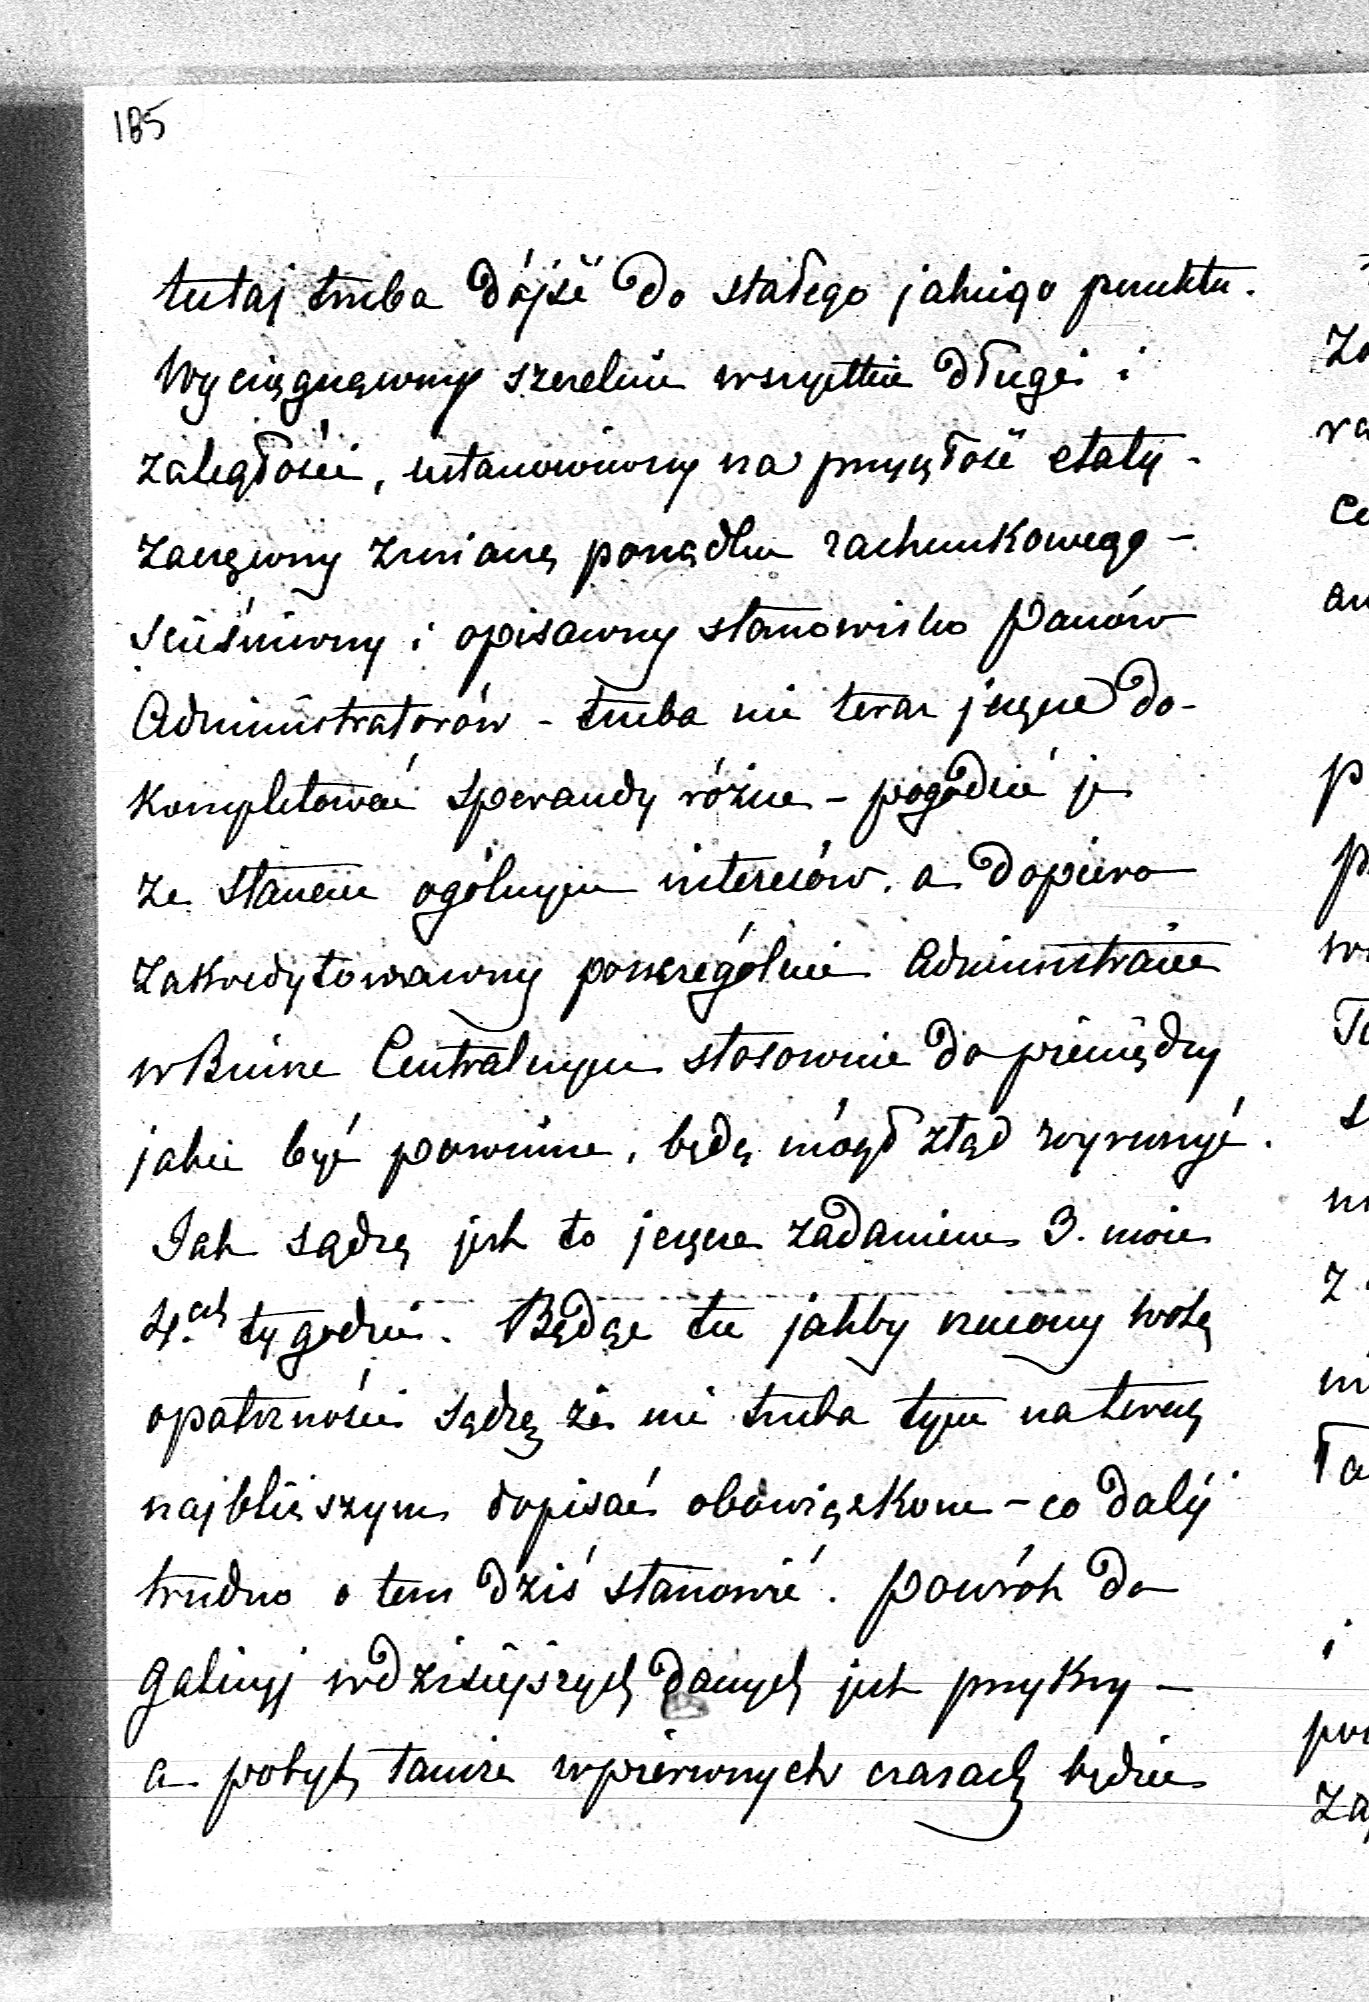 185
tutaj trzeba dójść do stałego jakiego punktu.
Wyciągnąwszy szczelnie wszystkie długi i
zaległości, ustanowiwszy na przyszłość etaty -
zacząwszy zmianę porządku rachunkowego -
ścieśniwszy i opisawszy stanowisko Panów
Administratorów - trzeba mi teraz jeszcze do-
kompletować sperandy różne - pogodzić je
ze stanem ogólnym interesów, a dopiero
zakredytowawszy poszczególnie Administracie
w Biurze Centralnym stosownie do pieniędzy
jakie być powinne, będę mógł ztąd wyruszyć.
Jak sądzę jest to jeszcze zadaniem 3. może
4.ech tygodni. Będąc tu jakby rzucony wolą
opatrzności sądzę że mi trzeba tym na teraz
najbliższym dopisać obowiązkom - co daléj
trudno o tem dziś stanowić. Powrót do
Galicyj w dzisiejszych danych jest przykry -
a pobyt tamże w pierwszych czasach będzie
Za
ra
au
p
z
ła
i